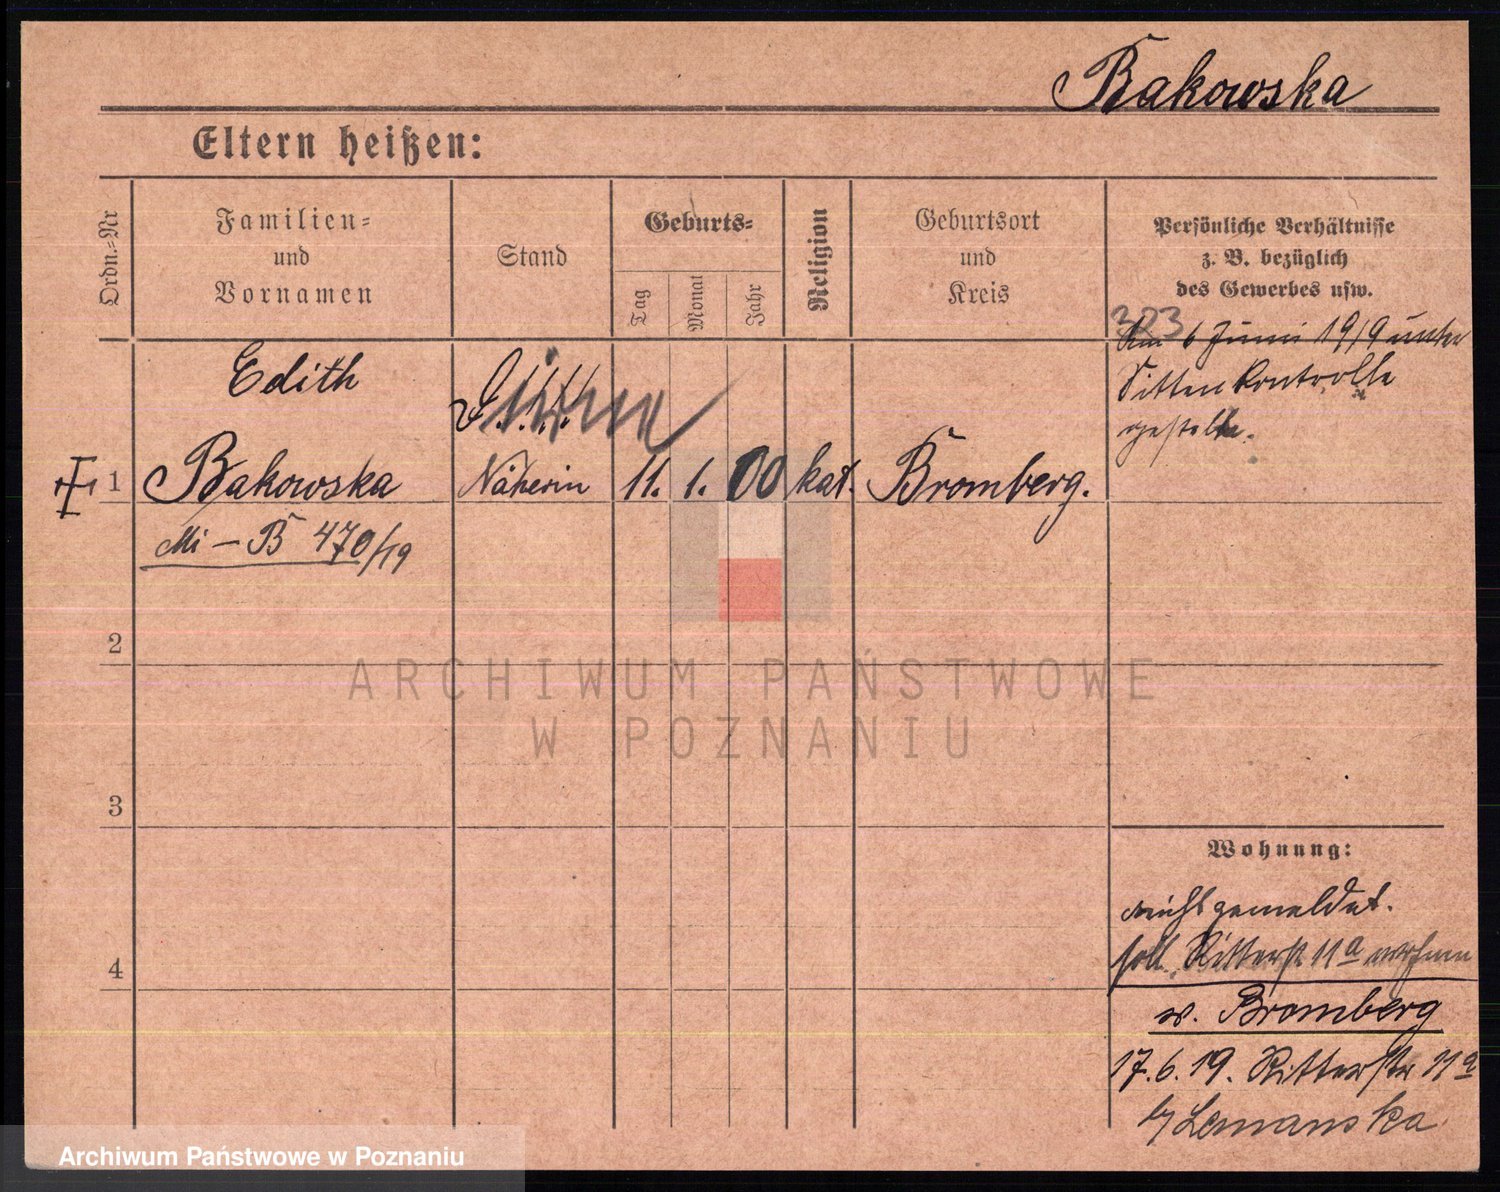 Bakowska
Eltern heißen:
Ordn.-Nr
Familien-
und
Vornamen
Stand
Geburts-
Tag
Monat
Jahr
Religion
Geburtsort
und
Kreis
Persönliche Verhältnisse
z. B. bezüglich
des Gewerbes usw.
323
Am 6 Juni 1919 unter
Sittenkontrolle
gestellt.
Edith
Dirne
1 Bakowska Näherin 11. 1. 00 kat. Bromberg.
Mi – B 470/19
2
3
4
ARCHIWUM PAŃSTWOWE
W POZNANIU
Wohnung:
nicht gemeldet.
soll Ritterstr 11a wohnen
v. Bromberg
17.6.19. Ritterstr 11a
b/ Lemanska
Archiwum Państwowe w Poznaniu